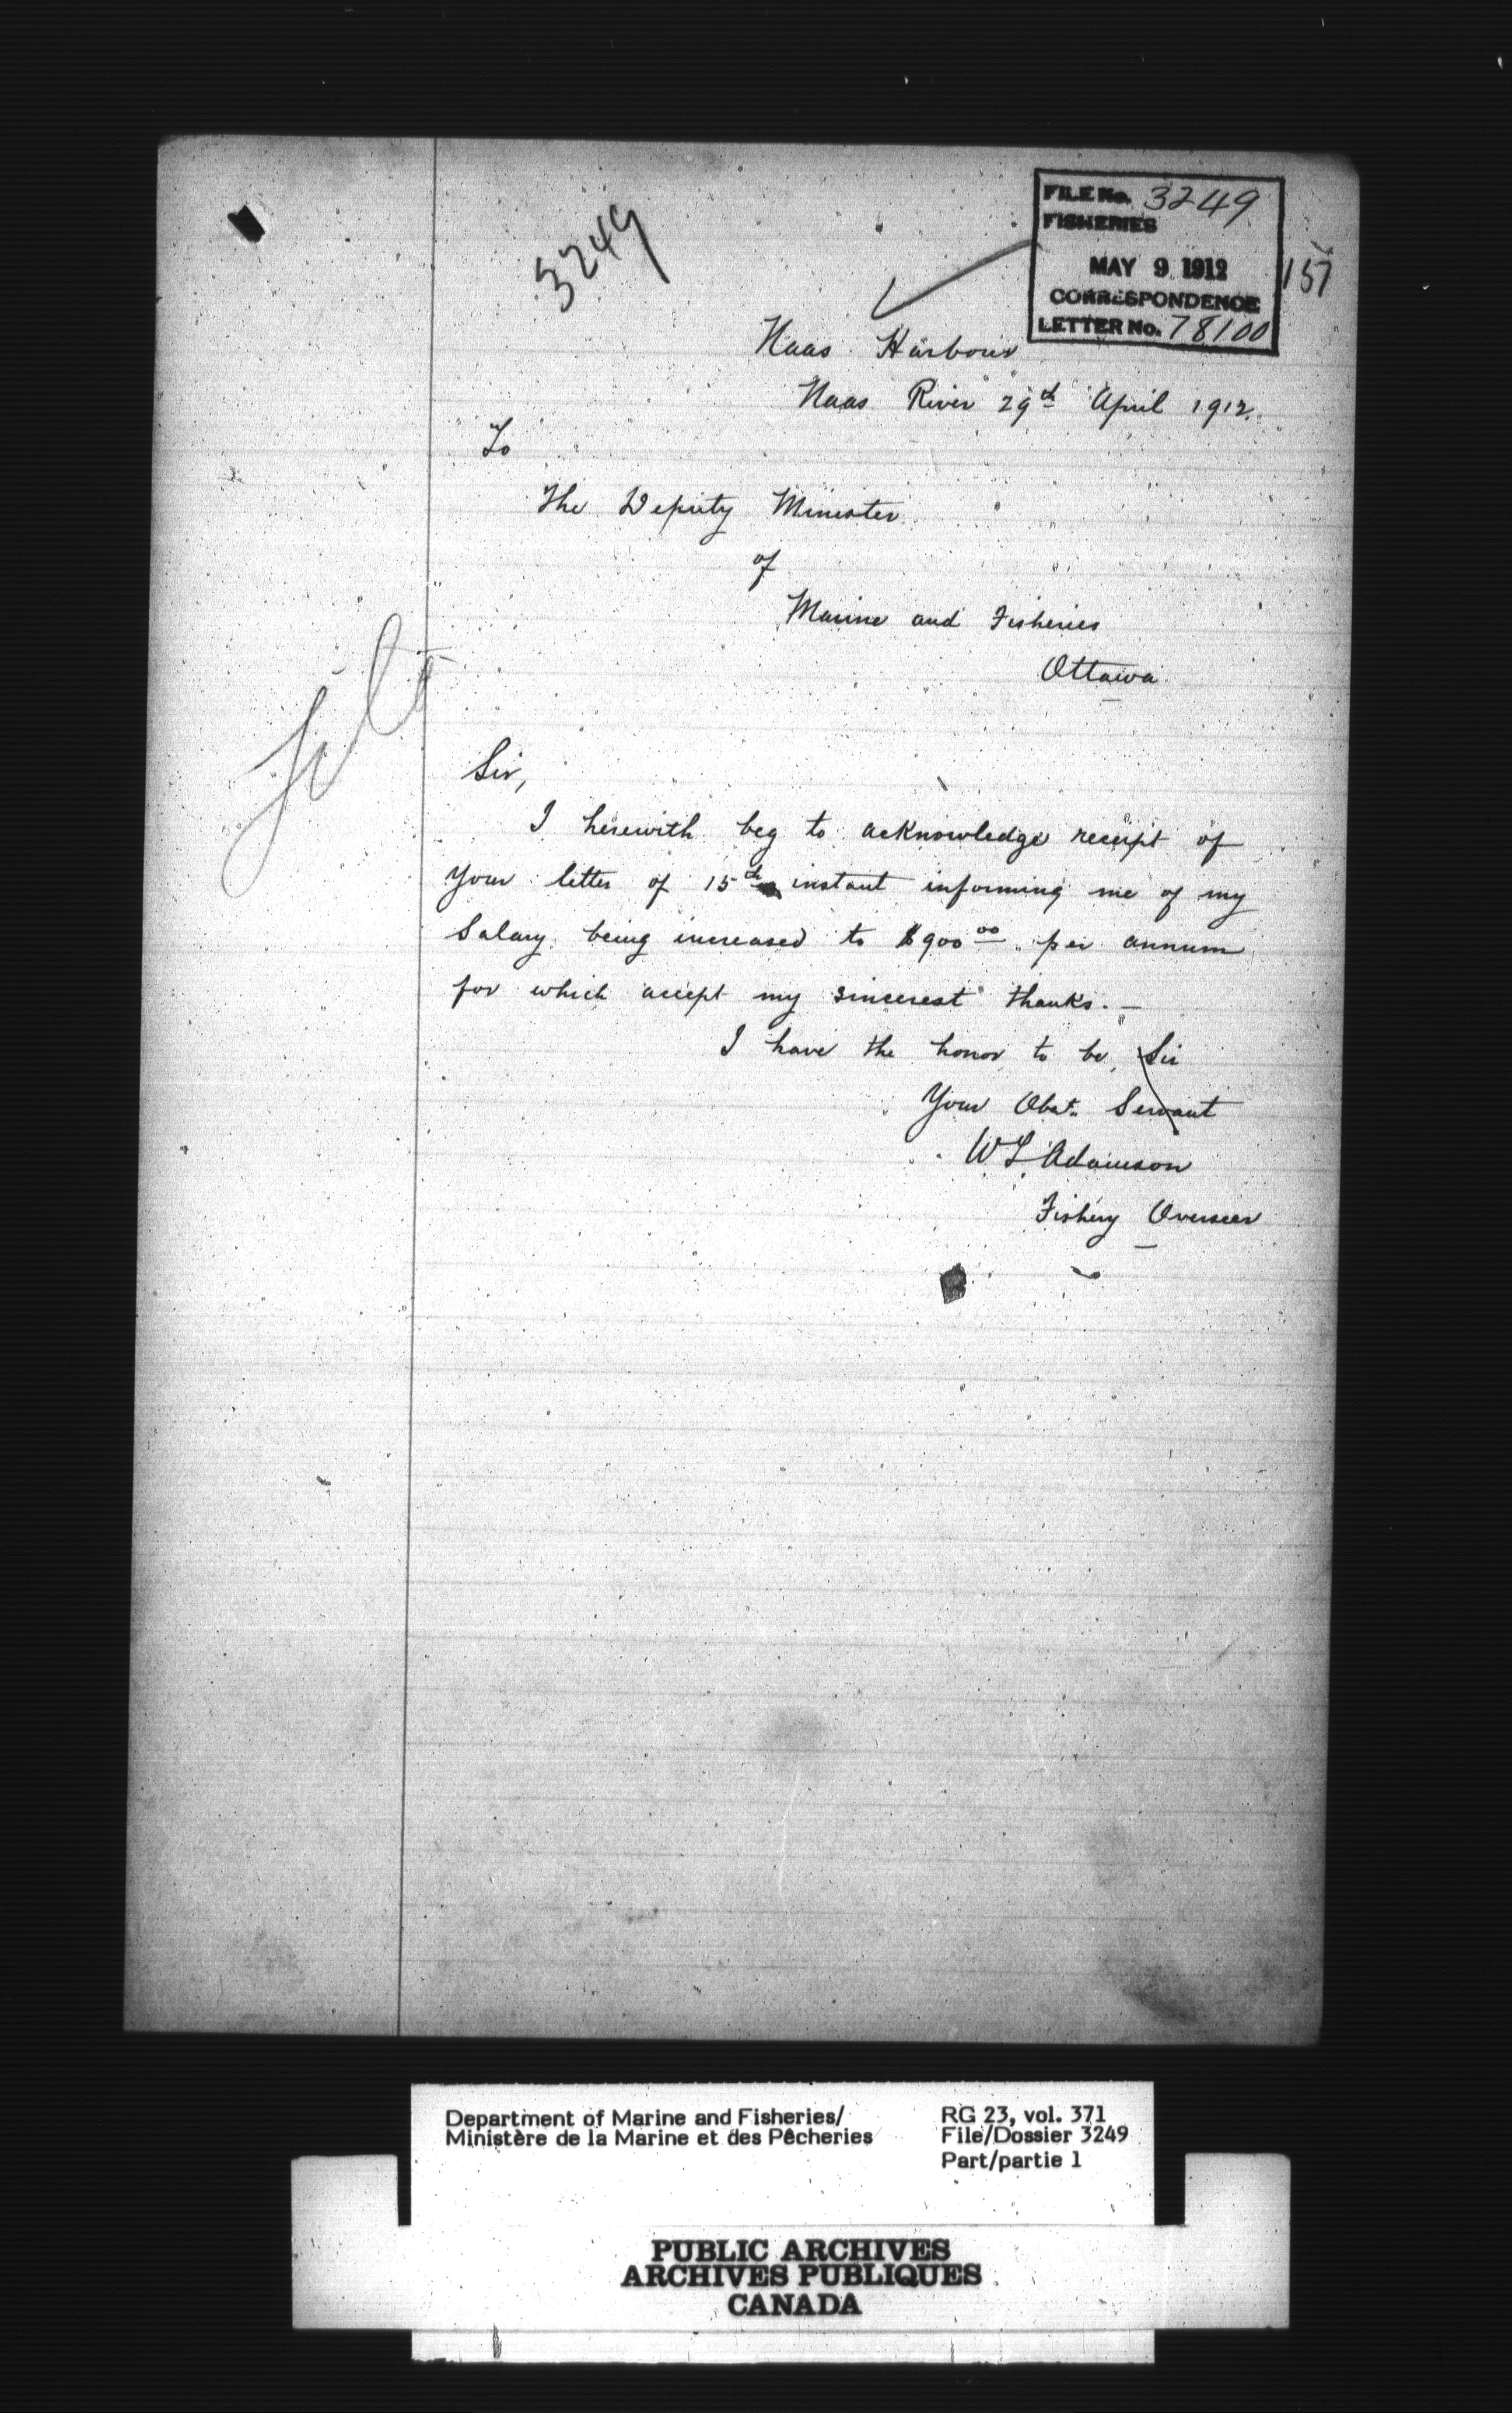 3249
FILE No. 3249
FISHERIES
MAY 9 1912
CORRESPONDENCE
LETTER No. 78100
157
Naas Harbour
Naas River 29th April 1912.
To
The Deputy Minister
of
Marine and Fisheries
Ottawa
file
Sir,
I herewith beg to acknowledge receipt of
your letter of 15th instant informing me of my
Salary being increased to $900 00 per annum
for which accept my sincerest thanks. —
I have the honor to be, Sir
Your Obdt. Servant
W L Adamson
Fishery Overseer
Department of Marine and Fisheries/
Ministère de la Marine et des Pêcheries
RG 23, vol. 371
File/Dossier 3249
Part/partie 1
PUBLIC ARCHIVES
ARCHIVES PUBLIQUES
CANADA